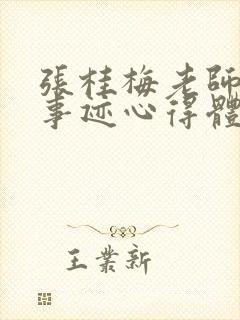 張桂梅老師
事迹心得體
王業新